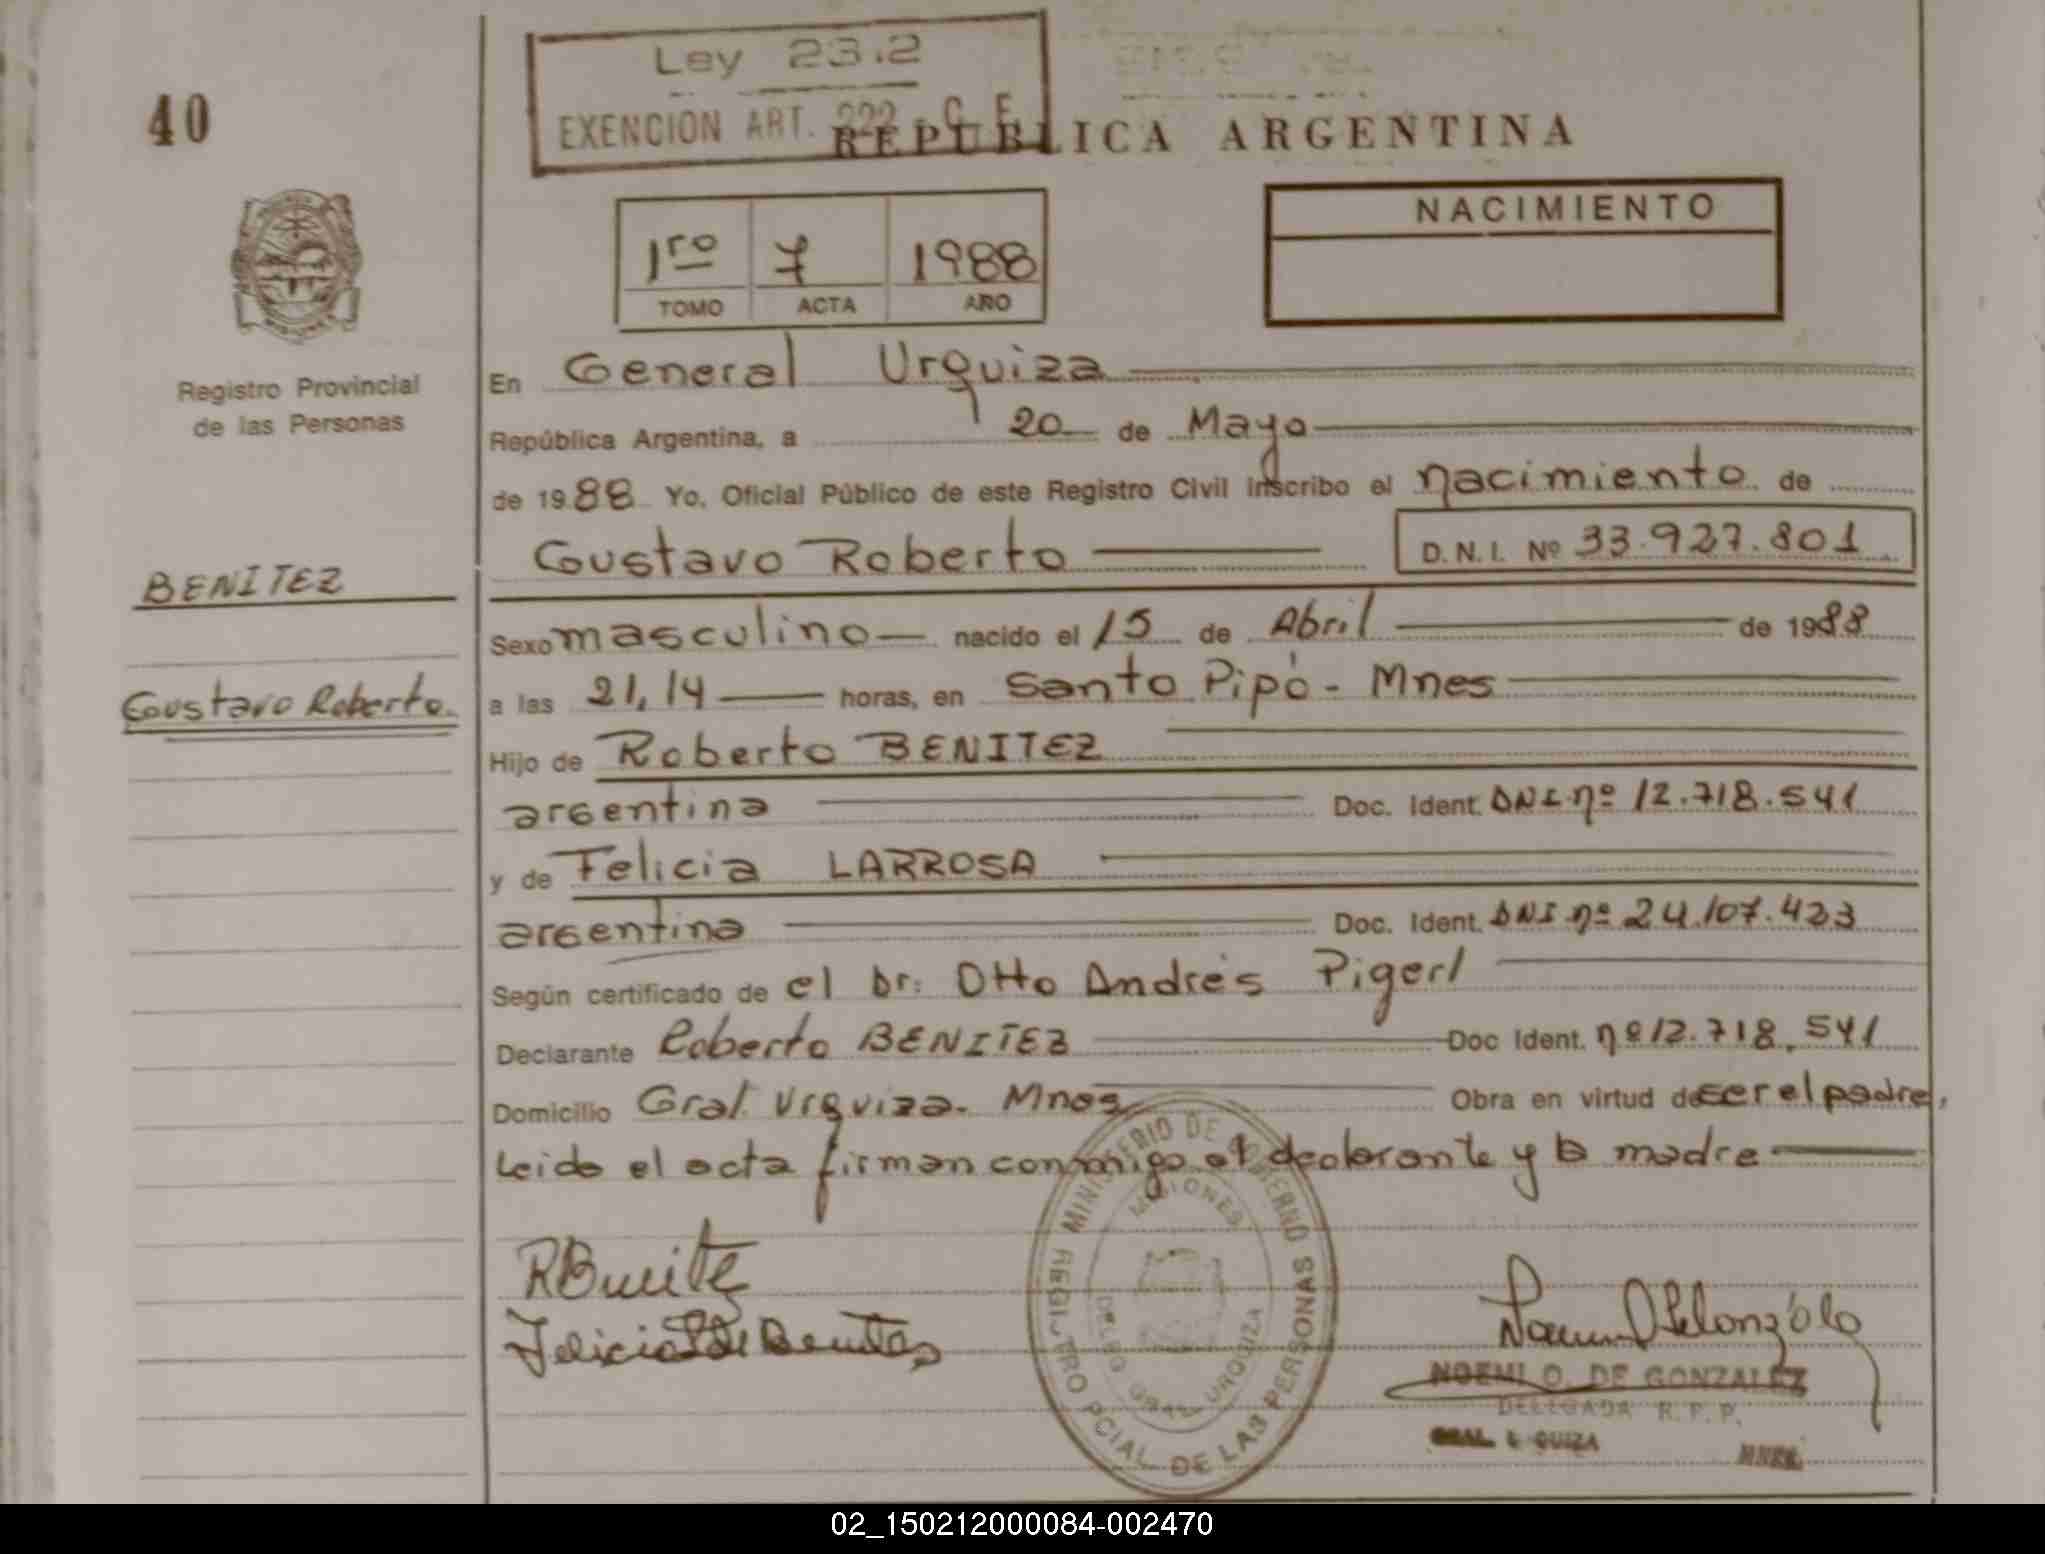 40
Ley 23.2
EXENCION ART.
REPUBLICA ARGENTINA
NACIMIENTO
1ro 7 1988
TOMO ACTA AÑO
Registro Provincial
de las Personas
En General Urquiza
República Argentina, a 20 de Mayo
de 1988 Yo, Oficial Público de este Registro Civil inscribo el nacimiento de
Gustavo Roberto D.N.I. Nº 33.927.801
BENITEZ
Gustavo Roberto.
Sexo masculino nacido el 15 de Abril de 1988
a las 21,14 horas, en Santo Pipó - Mnes
Hijo de Roberto BENITEZ
argentina Doc. Ident. DNI nº 12.718.541
y de Felicia LARROSA
argentina Doc. Ident. DNI nº 24.107.433
Según certificado de el Dr: Otto Andrés Pigerl
Declarante Roberto BENITEZ Doc Ident. nº 12.718.541
Domicilio Gral. Urquiza. Mnes Obra en virtud de ser el padre,
Leido el acta firman conmigo el declarante y la madre
MINISTERIO DE GOBIERNO
MISIONES
REGISTRO PCIAL DE LAS PERSONAS
DELEG GRAL URQUIZA
RBenitez
Felicia L de Benitez
NOEMI O. DE GONZALEZ
DELEGADA R.P.P.
GRAL URQUIZA MNES
02_150212000084-002470